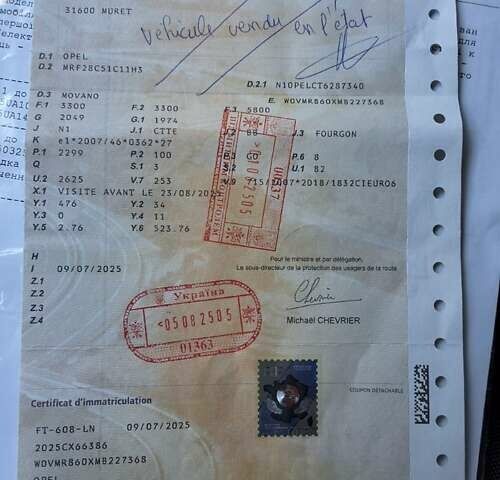 31600 MURET
Véhicule vendu en l'état
D.1 OPEL
D.2 MRF28C51C11H3
D.2.1 N10PELCT6287340
D.3 MOVANO
E. W0VMRB60XMB227368
F.1 3300 F.2 3300 F.3 5800
G 2049 G.1 1974
J N1 J.1 CTTE J.2 BB J.3 FOURGON
K e1*2007/46*0362*27
P.1 2299 P.2 100 P.3 GO P.6 8
Q S.1 3 U.1 82
U.2 2625 V.7 253 V.9 715/2007*2018/1832CIEURO6
X.1 VISITE AVANT LE 23/08/
Y.1 476 Y.2 34
Y.3 0 Y.4 11
Y.5 2.76 Y.6 523.76
H
Pour le ministre et par délégation,
I 09/07/2025
Le sous-directeur de la protection des usagers de la route
Z.1
Z.2
Z.3
Z.4
Michaël CHEVRIER
Україна
05082505
01363
COUPON DÉTACHABLE
Certificat d'immatriculation
FT-608-LN 09/07/2025
2025CX66386
W0VMRB60XMB227368
OPEL